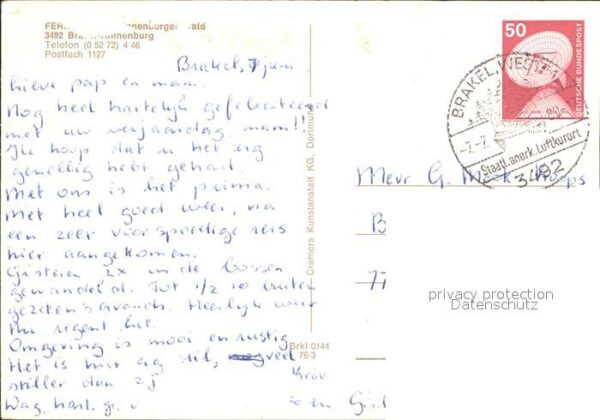 FER nenburger Wald
3492 Brakel-Rinnenburg
Telefon (0 52 72) 4 46
Postfach 1127
Brakel, 7 juni
lieve pap en mam.
Nog heel hartelijk gefeliciteerd
met uw verjaardag, mam!!
Ik hoop dat u het erg
gezellig hebt gehad.
Met ons is het prima.
Met heel goed weer, na
een zeer voorspoedige reis
hier aangekomen.
Gisteren 2x in de bossen
gewandeld. Tot 1/2 10 buiten
gezeten 's avonds. Heerlijk weer
Nu regent het.
Omgeving is mooi en rustig
Het is hier erg stil,
stiller dan bij
Dag, hart. gr. v
Cramers Kunstanstalt KG, Dortmund
Brkl 0144
76/3
50
DEUTSCHE BUNDESPOST
BRAKEL, WESTF 1
-7.-7.
Staatl. anerk. Luftkurort
3492
Mevr G.
B
77
privacy protection
Datenschutz